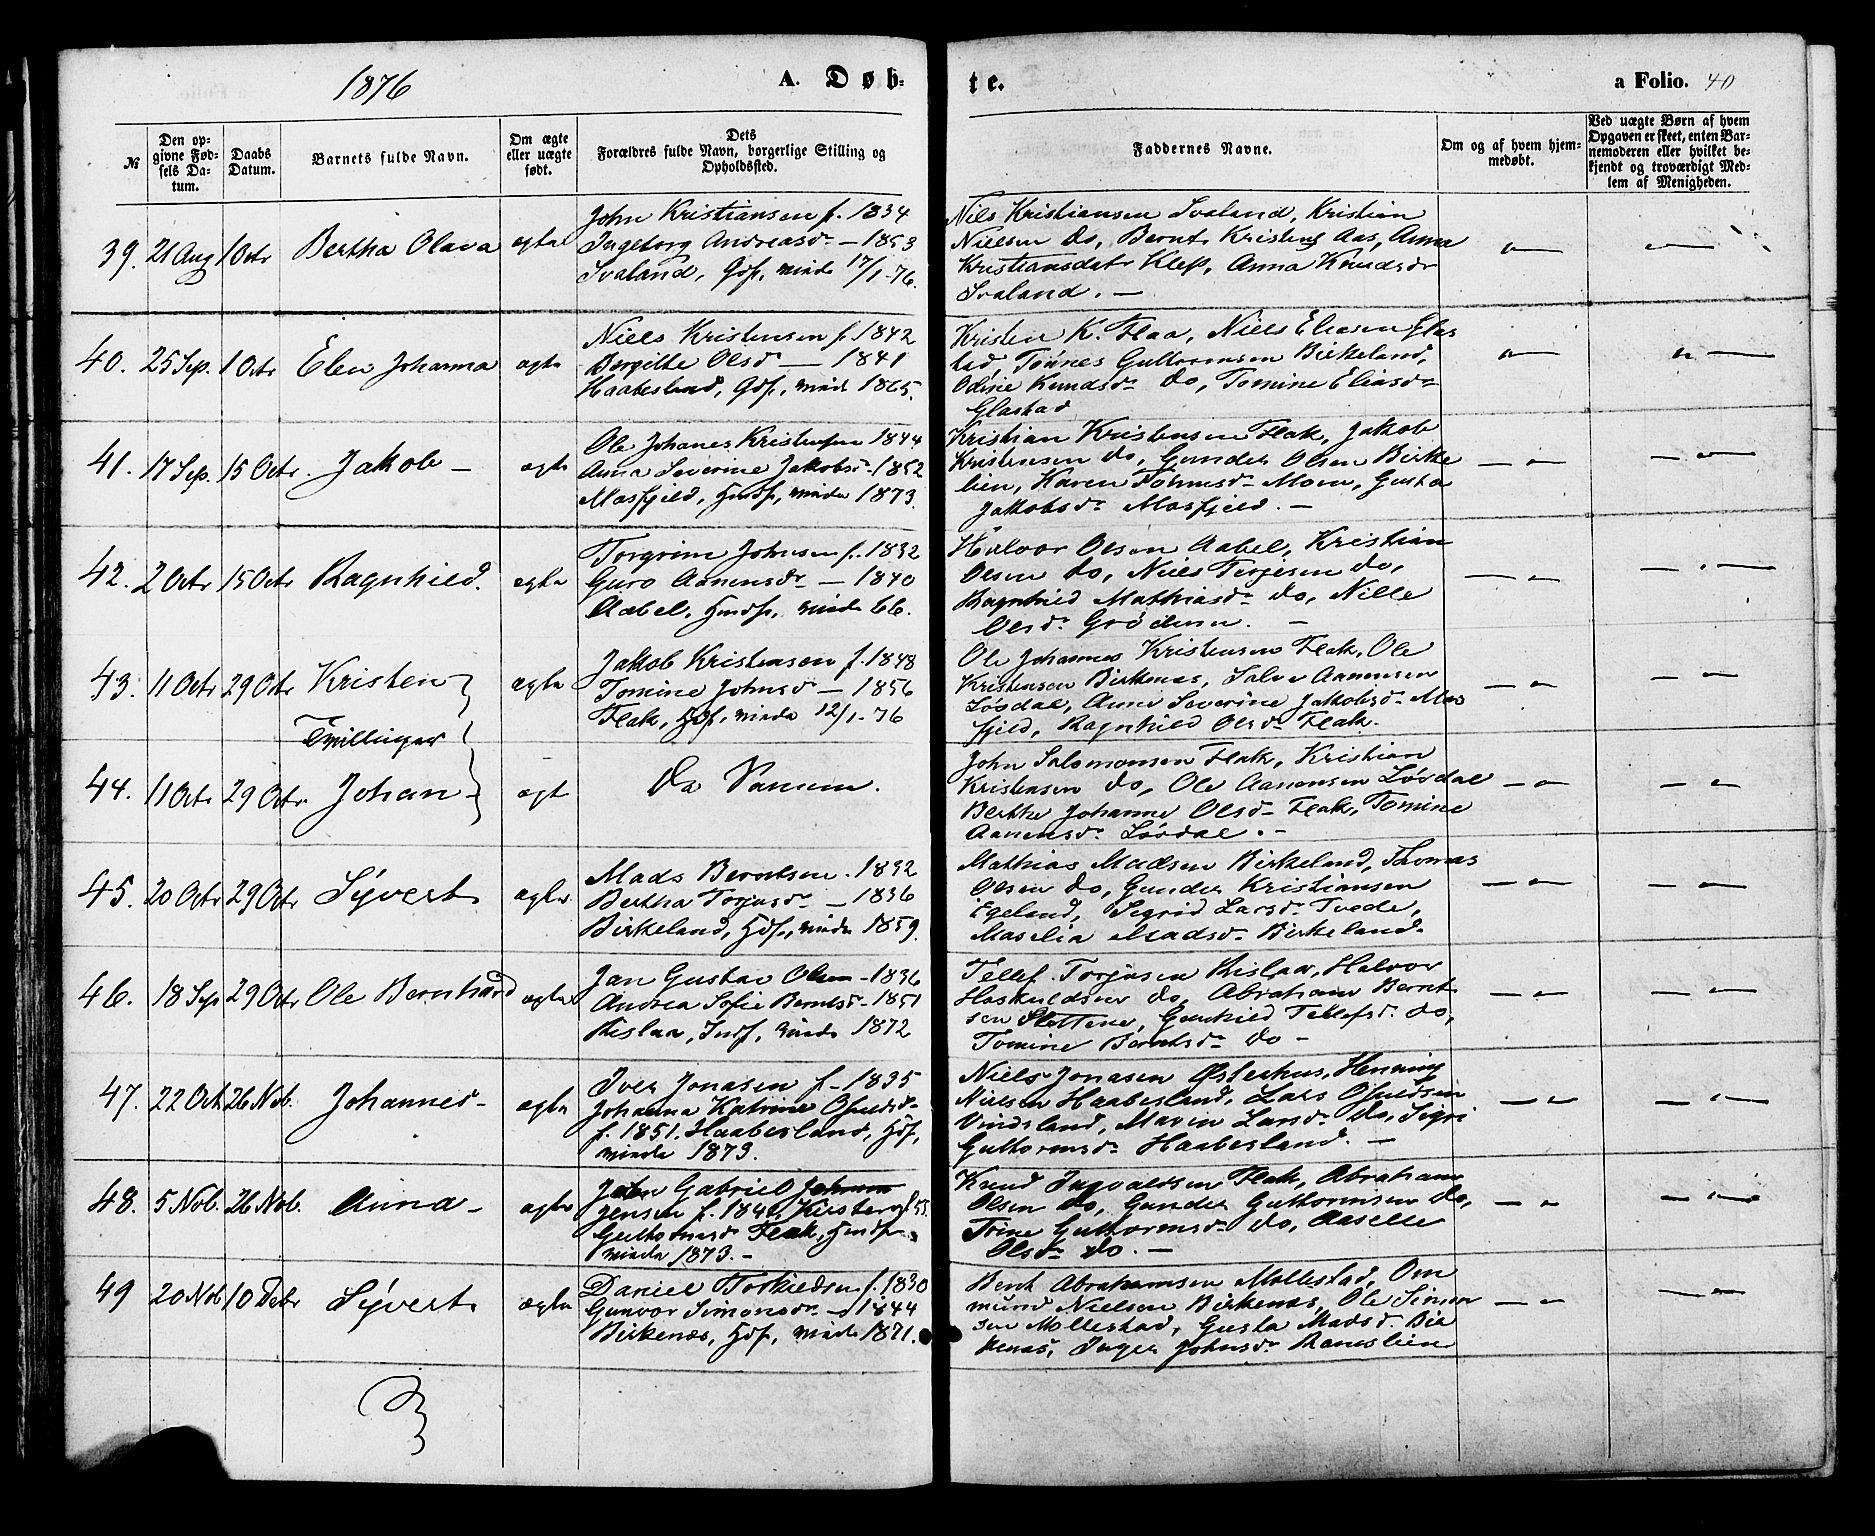 1876
A. Døb-
te.
a Folio. 40
№
Den op-
givne Fød-
sels Da-
tum.
Daabs
Datum.
Barnets fulde Navn.
Om ægte
eller uægte
født.
Dets
Forældres fulde Navn, borgerlige Stilling og
Opholdssted.
Faddernes Navne.
Om og af hvem hjem-
medøbt.
Ved uægte Børn af hvem
Opgaven er skeet, enten Bar-
nemoderen eller hvilket be-
kjendt og troværdigt Med-
lem af Menigheden.
39. 21 Aug 1 Octr Bertha Olava ægte
John Kristiansen f. 1834
Ingeborg Andreasdr — 1853
Svaland, Gdf, viede 17/1-76.
Nils Kristiansen Svaland, Kristian
Nielsen do, Bernt Kristens Aas, Anna
Kristiansdatr Klep, Anna Knudsdr
Svaland. —
40. 25 Sep. 1 Octr Elen Johanna ægte
Niels Kristensen f. 1842
Bergitte Olsdr — 1841
Haabesland, Gdf, viede 1865.
Kristen K. Flaa, Niels Eliasen Glas
tad, Tønnes Guttormsen Birkeland,
Odine Knudsdr do, Tomine Eliasdr
Glastad
41. 17 Sep. 15 Octr. Jakob — ægte
Ole Johanes Kristensen 1844
Anna Severine Jakobsdr - 1852
Mosfjeld, Hmdf, viede 1873.
Kristian Kristensen Flak, Jakob
Kristensen do, Gunder Olsen Birke
lien, Karen Tormsdr Moen, Gusta
Jakobsdr Mosfjeld. —
42. 2 Octr 15 Octr Ragnhild. ægte
Torgrim Johnsen f. 1832
Guro Aanensdr — 1840
Aabel, Hmdf, viede 66.
Halvor Olsen Aabel, Kristian
Olsen do, Niels Terjesen do,
Ragnhild Mathiasdr do, Nille
Olsdr Grødum. —
43. 11 Octr 29 Octr Kristen ægte
Jakob Kristensen f. 1848
Tomine Johnsdr — 1856
Flak, Gdf, viede 12/1-76
Ole Johannes Kristensen Flak, Ole
Kristensen Birkenæs, Salve Aanensen
Løvdal, Anne Severine Jakobsdr Mos
fjeld, Ragnhild Olsdr Flak.
Tvillinger
44. 11 Octr 29 Octr. Johan ægte
Da Samme.
John Salomonsen Flak, Kristian
Kristensen do, Ole Aanonsen Løvdal
Berthe Johanne Olsdr Flak, Tomine
Aanensdr Løvdal. —
45. 20 Octr 29 Octr Syvert ægte
Mads Berntsen . 1832
Bertha Torjusdr — 1836
Birkeland, Gdf, viede 1859.
Mathias Madsen Birkeland, Thomas
Olsen do, Gunder Kristiansen
Egeland, Sigrid Larsdr Tvede,
Maselia Madsdr Birkeland.
46. 18 Sep 29 Octr Ole Bernhard ægte
Jan Gustav Olsen - 1836
Andrea Sofie Berntsdr - 1851
Rislaa, Indf, viede 1872
Tellef Torjusen Rislaa, Halvor
Haskuldsen do, Abraham Bernt
sen Slottene, Gunhild Tellefsdr. do,
Tomine Berntsdr do —
47. 22 Oct 26 Nob. Johannes — ægte
Iver Jonasen f - 1835
Johanna Katrine Osuldsdr
f. 1851. Haabesland, Gdf,
viede 1873.
Niels Jonasen Østerhus, Henning
Nielsen Haabesland, Lars Osuldsen
Vindsland, Maren Larsdr do, Sigri
Guttormsdr Haabesland. —
48. 5 Nob. 26 Nob. Anna — ægte
John Gabriel Johnsen
Jensen f. 184
Guttormsdr Flak, Hmdf
viede 1873. —
Knud Ingvaldsen Flak, Abraham
Olsen do, Gunder Guttormsen do,
Trine Guttormsdr do, Aaselle
Olsdr do. —
49 20 Nob 10 Debr Syvert ægte
Daniel Torkildsen f. 1830
Gunvor Simonsdr — 1844
Birkenæs, Gdf, viede 1871.
Bent Abrahamsen Mollestad, Om
mund Nielsen Birkenæs, Ole Simon
sen Mollestad, Gusta Madsdr Bir
kenæs, Inger Johnsdr Ramslien